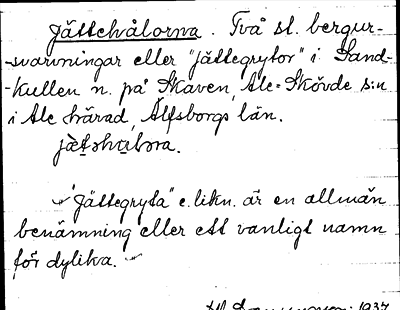 Jättehålorna. Två st. bergur-
-svarvningar eller "jättegrytor" i Sand-
-kullen n. på Skåven, Ale-Skövde s:n
i Ale härad, Älfsborgs län.
"Jättegryta" e. likn. är en allmän
benämning eller ett vanligt namn
för dylika.
1937